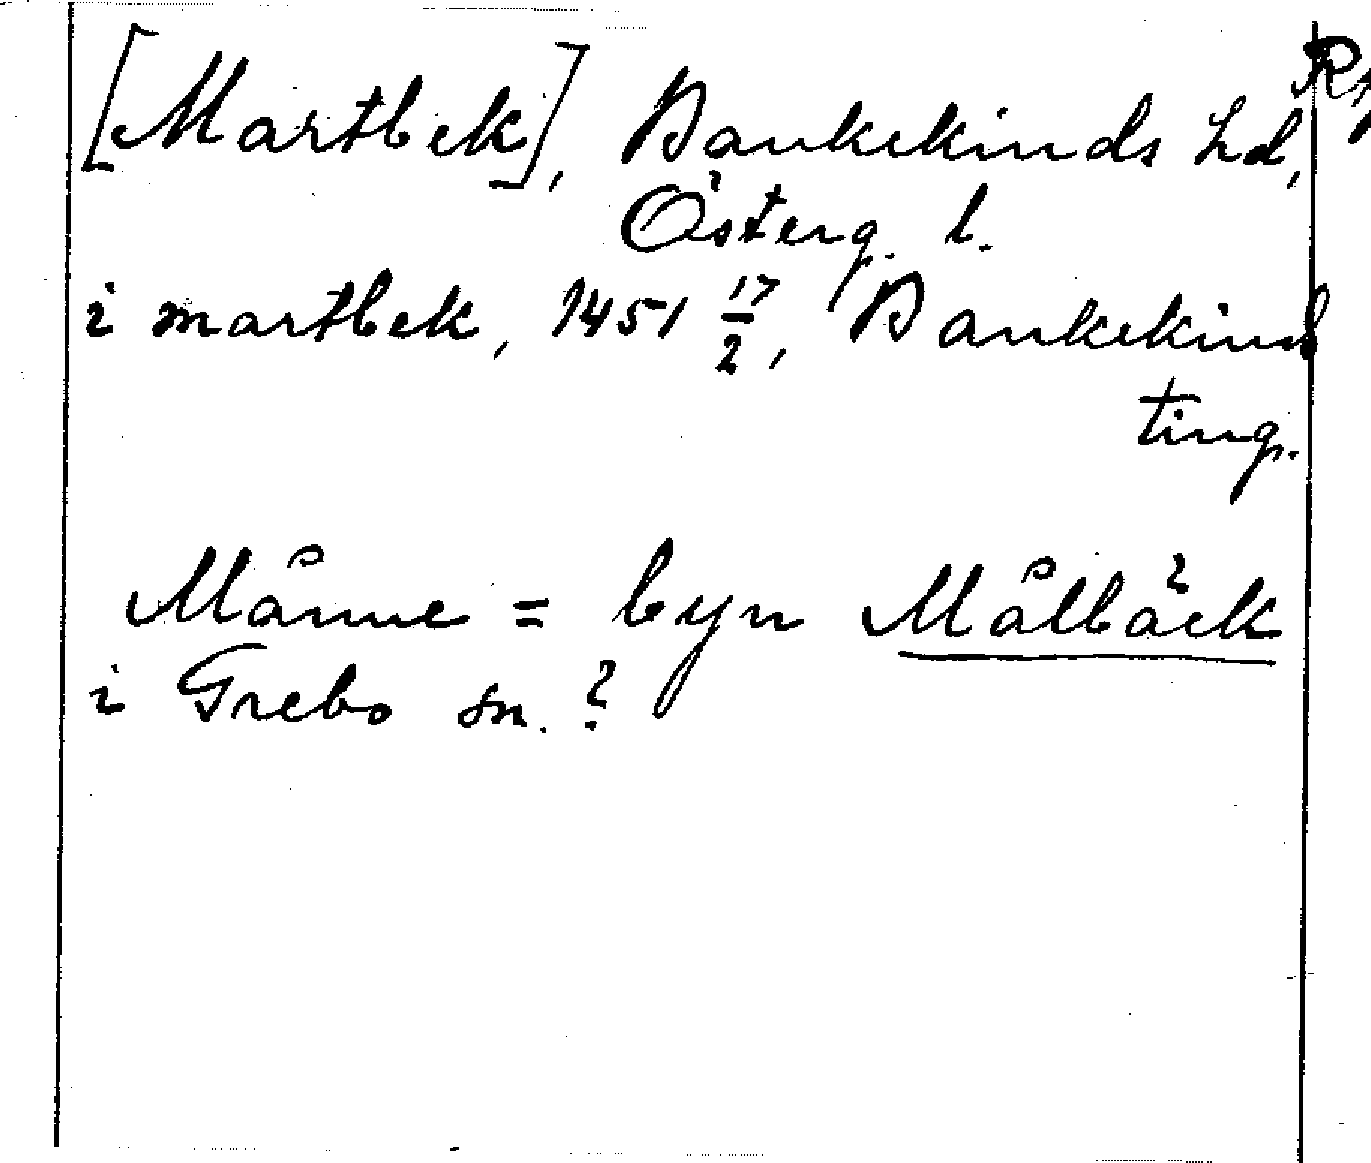 [Martbek], Bankekinds hd, Rp
Österg. l.
i martbek, 1451 17/2, Bankekind
ting.
Månne = byn Målbäck
i Grebo sn. ?